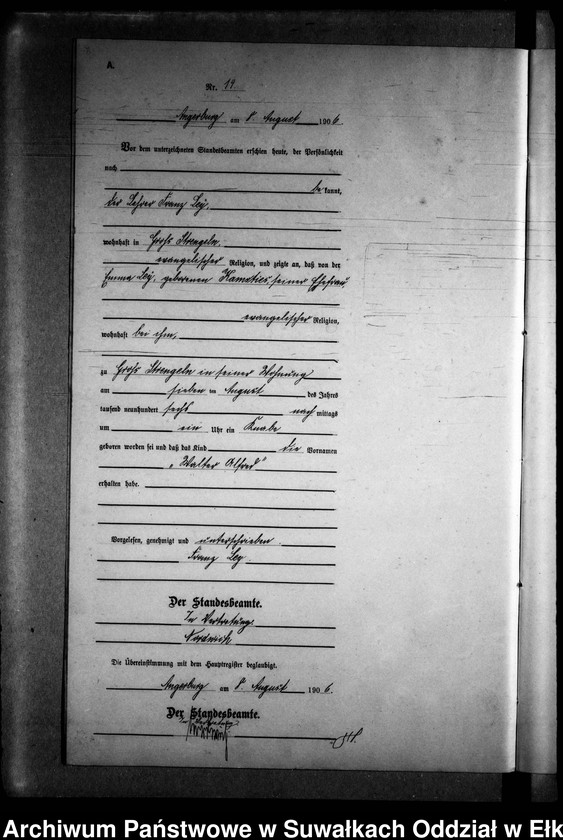 A.
Nr. 19
Angerburg am 8. August 1906.
Vor dem unterzeichneten Standesbeamten erschien heute, der Persönlichkeit
nach
be kannt,
der Lehrer Franz Ley,
wohnhaft in Groß Strengeln,
evangelischer Religion, und zeigte an, daß von der
Emma Ley, geborenen seiner Ehefrau
evangelischer Religion,
wohnhaft bei ihm,
zu Groß Strengeln in seiner Wohnung
am sieben ten August des Jahres
tausend neunhundert sechs nach mittags
um ein Uhr ein Knabe
geboren worden sei und daß das Kind die Vornamen
"Walter Alfred"
erhalten habe.
Vorgelesen, genehmigt und unterschrieben
Franz Ley
Der Standesbeamte.
In Vertretung
Die Übereinstimmung mit dem Hauptregister beglaubigt.
Angerburg am 8. August 1906.
Der Standesbeamte.
In Vertretung
Archiwum Państwowe w Suwałkach Oddział w Ełk